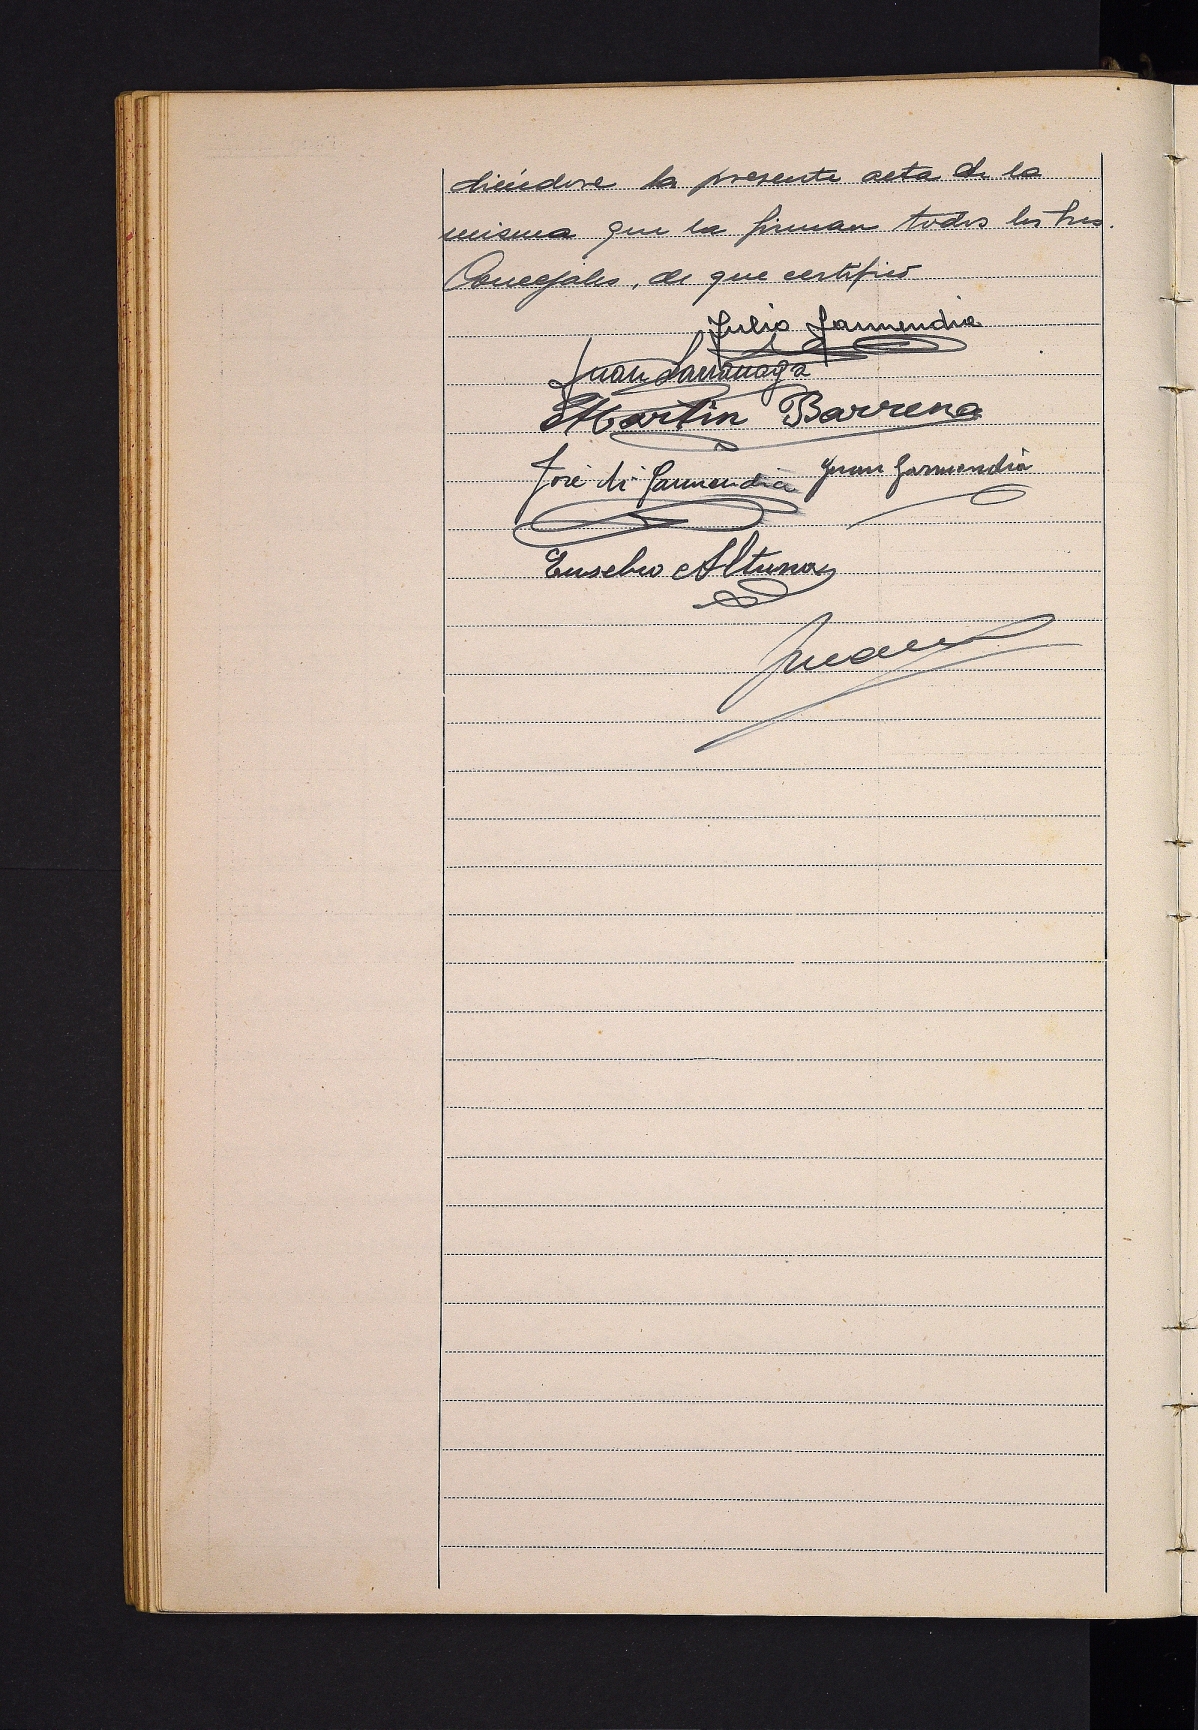 diéndose la presente acta de la
misma que la firman todos los Sres.
Concejales, de que certifico
Julio Garmendia
Juan Larrañaga
Martin Barrena
José Mª Garmendia Juan Garmendia
Eusebio Altuna